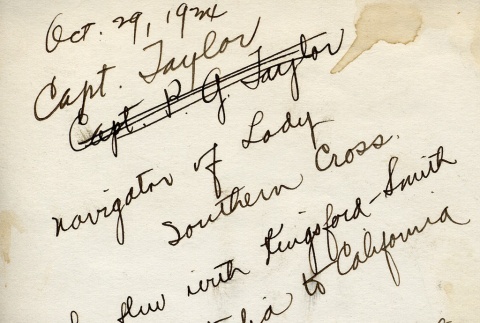 Oct. 29, 1934
Capt. Taylor
Capt. P. G. Taylor
navigator of Lady
Southern Cross.
flew with Kingsford-Smith
to California